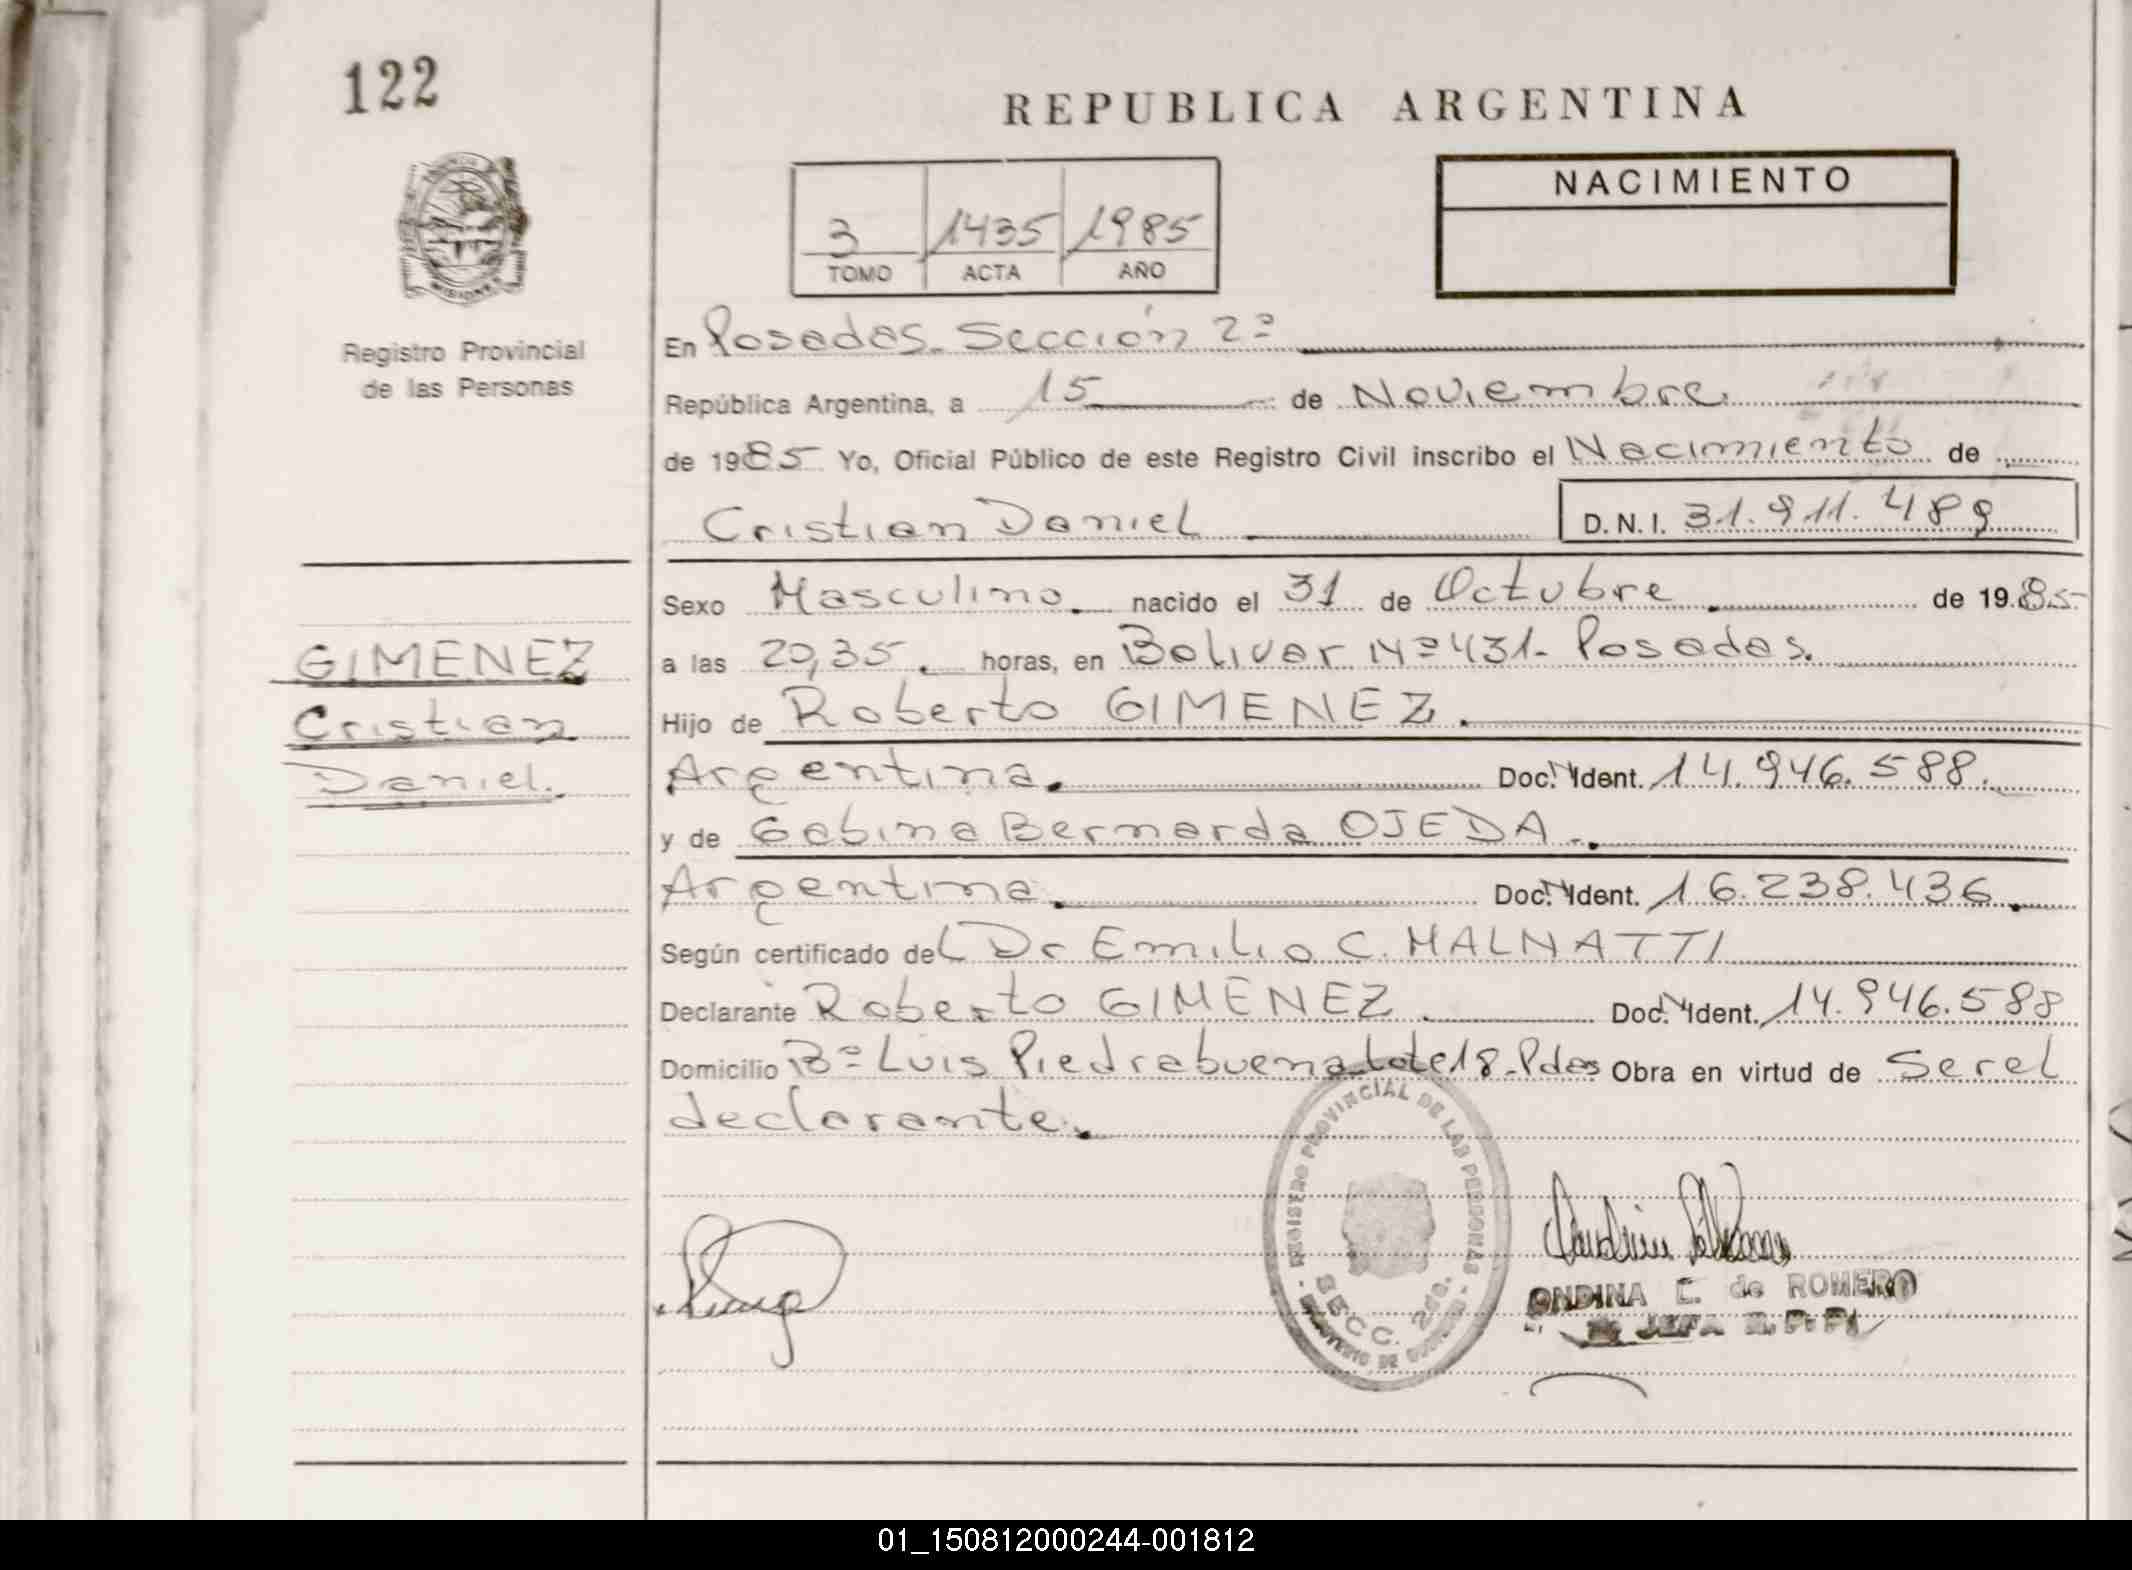 122
REPUBLICA ARGENTINA
NACIMIENTO
3 1435 1985
TOMO ACTA AÑO
MISIONES
Registro Provincial
de las Personas
En Posadas. Sección 2ª
República Argentina, a 15 de Noviembre
de 1985 Yo, Oficial Público de este Registro Civil inscribo el Nacimiento de
Cristian Daniel D.N.I. 31.911.489
Sexo Masculino. nacido el 31 de Octubre de 1985
a las 20,35. horas, en Bolivar Nº 431. Posadas.
GIMENEZ
Cristian
Daniel.
Hijo de Roberto GIMENEZ.
Argentina. Doc. N Ident. 14.946.588.
y de Gabina Bernarda OJEDA.
Argentina. Doc. N Ident. 16.238.436.
Según certificado del Dr Emilio C. MALNATTI
Declarante Roberto GIMENEZ Doc. N Ident. 14.946.588
Domicilio Bº Luis Piedrabuena Lote 18. Pdas Obra en virtud de ser el
declarante.
REGISTRO PROVINCIAL DE LAS PERSONAS
SECC. 2da.
MINISTERIO DE GOBIERNO
ONDINA E. de ROMERO
JEFA R.P.P.
01_150812000244-001812